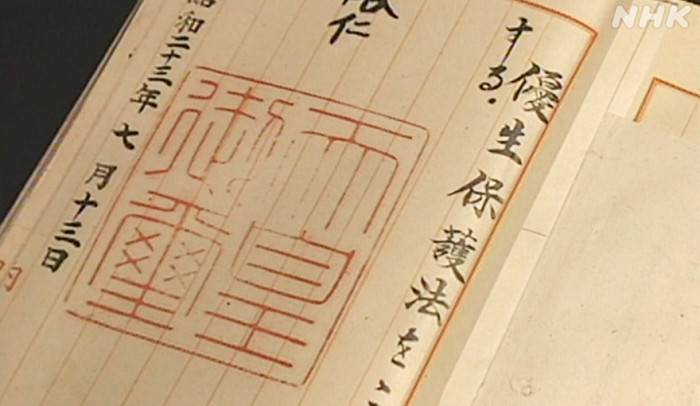 NHK
優生保護法を
する。
裕仁
天皇
御璽
昭和二十三年七月十三日